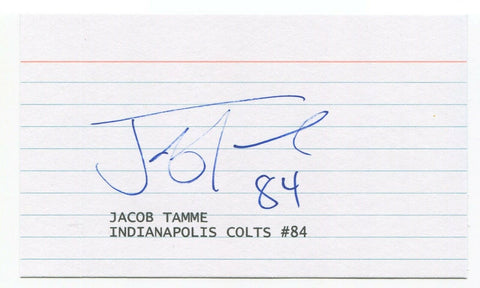 84
JACOB TAMME
INDIANAPOLIS COLTS #84